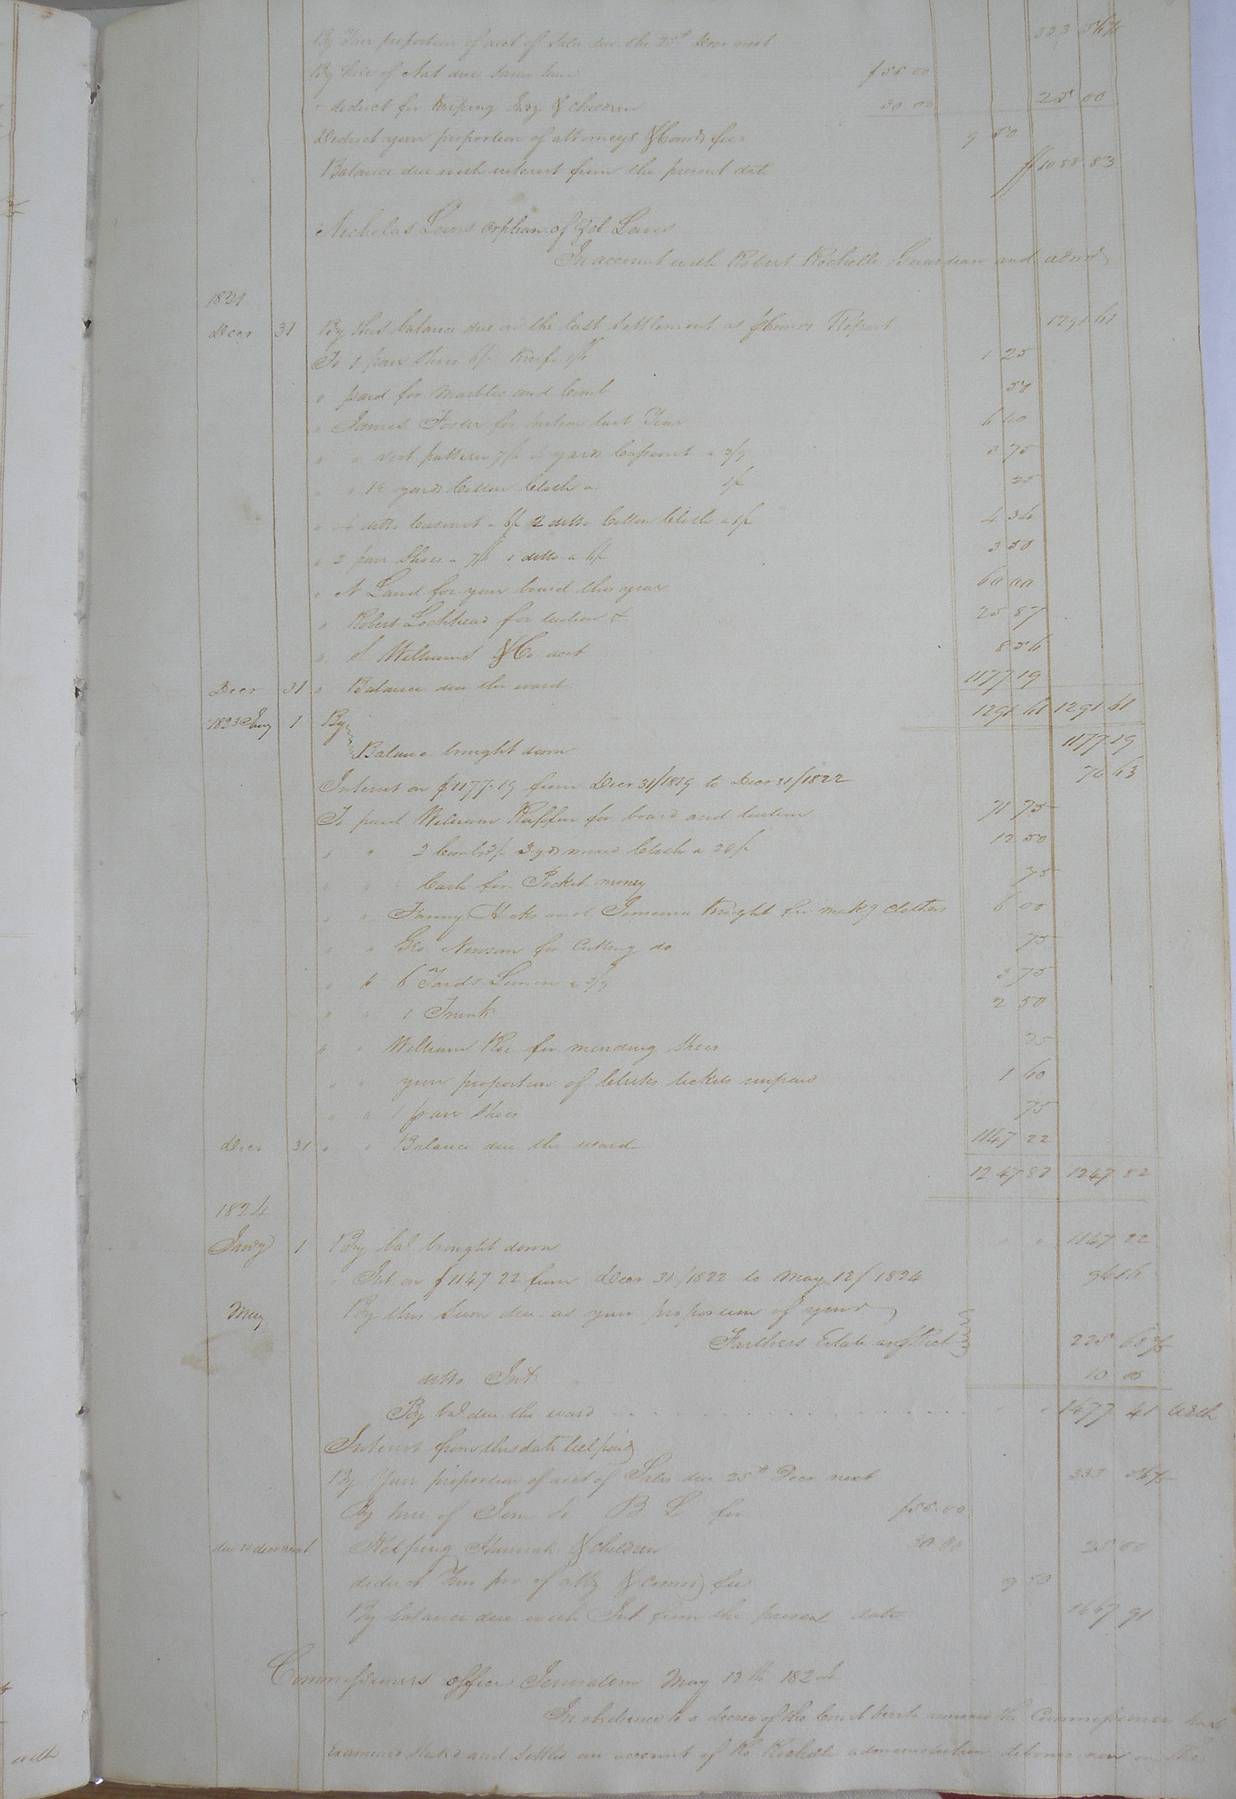 By Your proportion of acct of Sales due the 25th Decr next 333 56½
By hire of Nat due same time $55 00
" deduct for keeping & children 30 00 25 00
Deduct your proportion of attorneys & Comrs fees 9 50
Balance due with interest from the present date $1088.83
Nicholas Lanes orphan of Lanes
In account with Robert Rochelle Guardian and admr
1821
Decr 31 By this balance due on the last settlement as Report 1291 61
To 1 pair Shoes 6/ Knife 1/6 1 25
" paid for Marbles and Comb
" James Foster for tuition last Year 6 00
" " vest pattern 7/6 yards Casinet a 3/9 3 75
" " 1½ yards Cotton Cloth a 1/ 25
" ditto Casinet 2 ditto Cotton Cloth a 1/ 4 34
" 2 pair Shoes a 7/6 1 ditto a 6/ 3 50
" N Land for your board this year 60 00
" Robert Lochhead for tuition & 25 87
" S Williams & Co acct 8 56
Decr 31 " Balance due the ward 1177 19
1291 61 1291 61
1823 Jany 1 By
Balance brought down 1177.19
Interest on $1177.19 from Decr 31/1819 to Decr 31/1822 70 63
To paid William Ruffin for board and tuition 71 75
" " 2 Combs 3 yds mixed Cloth a 12 50
" " Cash for Pocket money 75
" " Fanny Hicks and Jemima Knight for makg clothes 6 00
" " Geo Newsom for Cutting do 75
" " 6 Yards Linnen a 3/9 3 75
" " 1 Trunk 2 50
" " William Roe for mending Shoes 25
" " your proportion of Clerks tickets unpaid 1 60
" " 1 pair Shoes 75
Decr 31 " " Balance due the ward 1147 22
1247 82 1247 82
1824
Jany 1 By bal brought down " " 1147 22
" Int on $1147 22 from Decr 31/1822 to May 12/1824
May By this Sum due as your proportion of your
Fathers Estate
ditto Int 10 00
By bal due the ward . . . . . . . . . . 1477 41 with
Interest from this date till paid
By Your proportion of acct of Sales due 25th Decr next 333 56½
By hire of do B L for $55.00
due 25 decr next Keeping Hannah & children 30.00 25 00
deduct Your pro of atty & Comrs fees 9 50
By balance due with Int from the present date
Commissioners office Jerusalem May 12th 1824
In obedience to a decree of the Court hereto annexed the Commissioner hath
examined stated and settled an account of Ro Rochelle administration